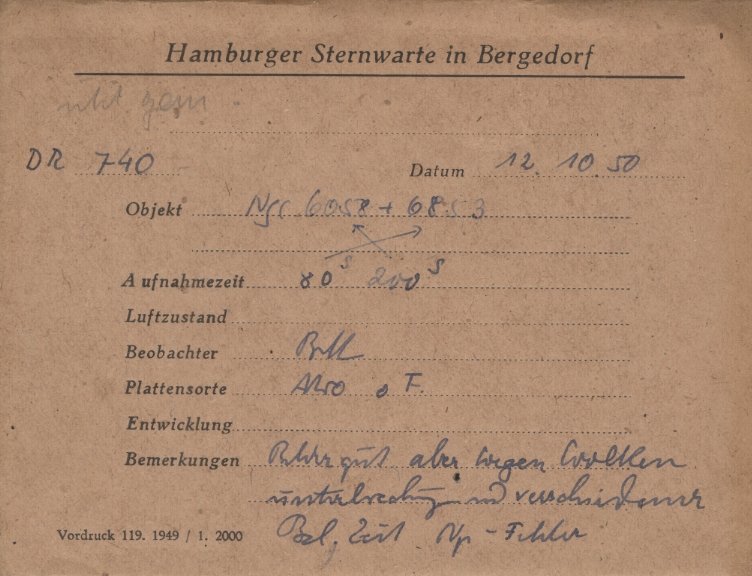 Hamburger Sternwarte in Bergedorf
DR 740
Datum 12. 10. 50
Objekt Ngc 6058 + 6853
Aufnahmezeit 80s 200s
Luftzustand
Beobachter
Plattensorte o F.
Entwicklung
Bemerkungen Bilder gut aber wegen Wolken
unterbrechung und verschiedener
Bel. Zeit Np - Fehler
Vordruck 119. 1949 / 1. 2000